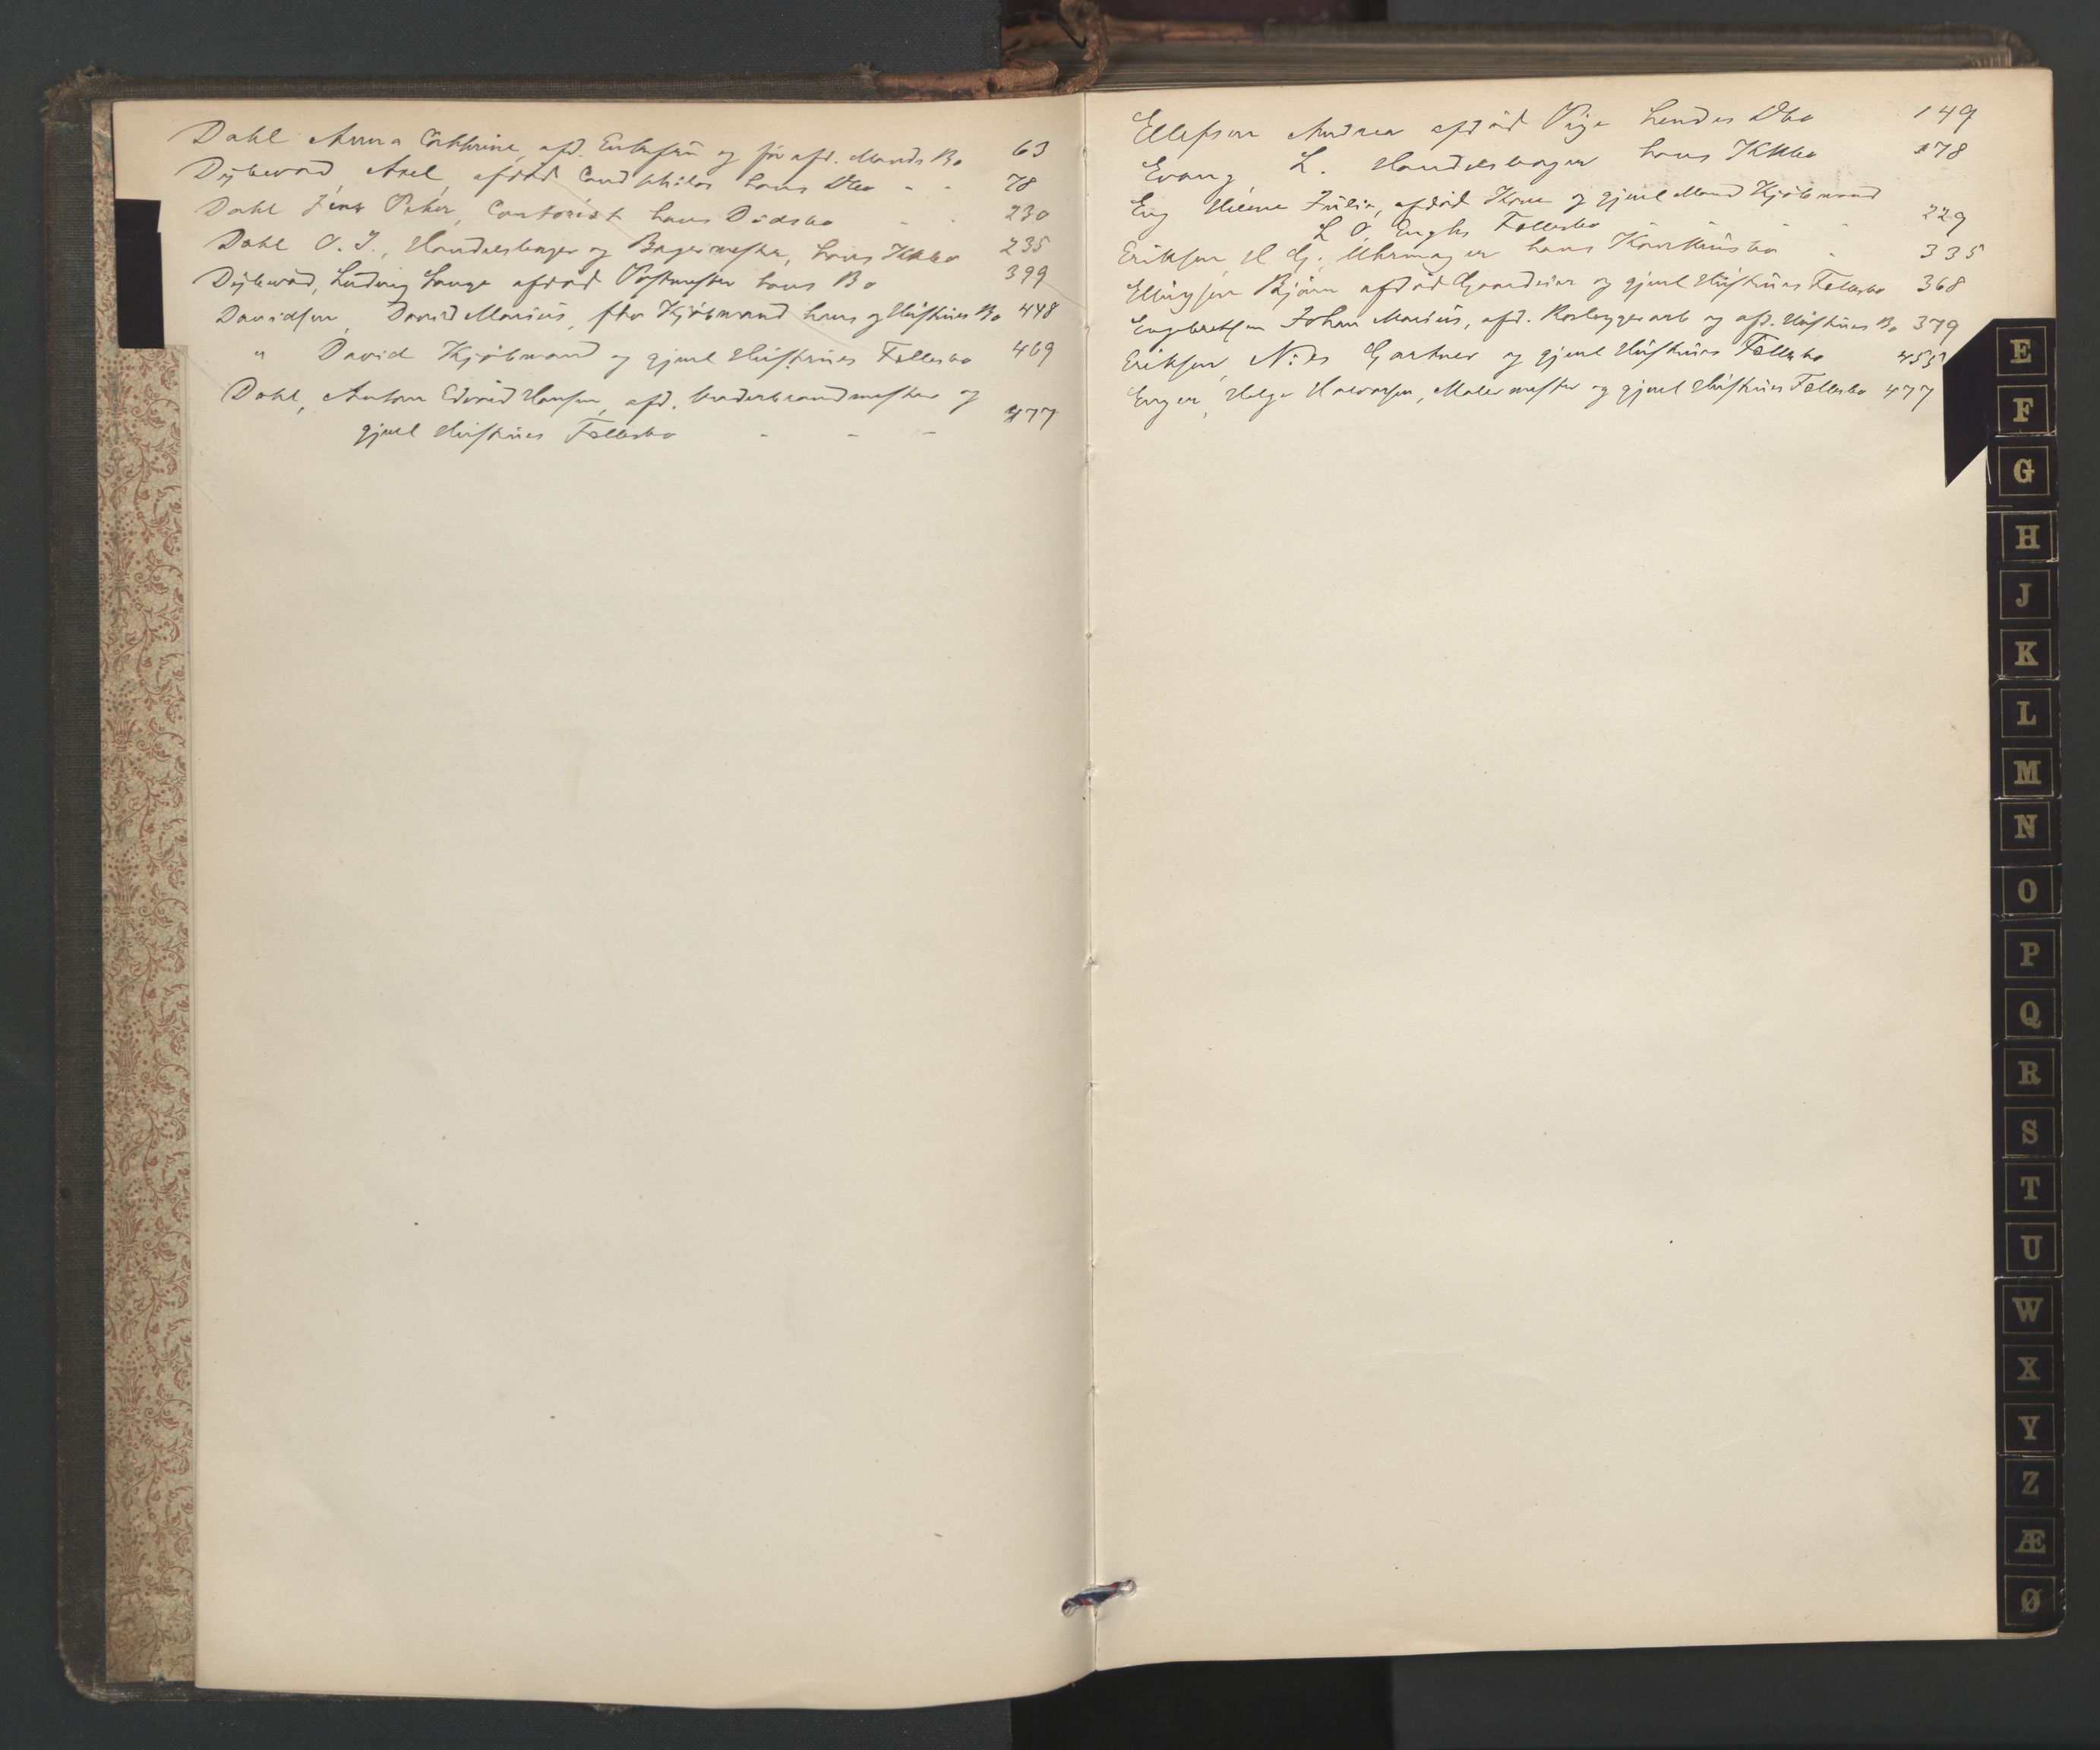 Dahl Anna Cathrine, afd. Enkefru og før afd. Mands Bo 63
Dybwad Axel, afdød Cand philos hans Dbo - - 78
Dahl Jens Peter, Contorist hans Dødsbo - - 230
Dahl O. J., Handelsborger og Bagermester, hans Kkbo 235
Dybwad, Ludvig Lange afdød Postmester hans Bo 399
Davidsen, David Marius, fhv Kjøbmand hans og Hustrues Bo 448
" David Kjøbmand og gjenl Hustrues Fællesbo 469
Dahl, Anton Edvard Hansen, afd. Underbrandmester og
gjenl Hustrues Fællesbo - - - 477
Ellefsen Andrea afdød Pige hendes Dbo 149
Evang L. Handelsborger hans Kkbo 178
Eng Helene Julie, afdød Kone og gjenl Mand Kjøbmand
L O. Enghs Fællesbo - - 229
Eriksen H G. Uhrmager hans Konkursbo - 335
Ellingsen Bjørn afdød Gaardeier og gjenl Hustrues Fællesbo 368
Engebretsen Johan Marius, afd. Rørlæggerarb og afd. Hustrues Bo 379
Eriksen, Nils Gartner og gjenl Hustrues Fællesbo 455
Enger, Helge Halvorsen, Malermester og gjenl Hustrues Fællesbo 477
E
F
G
H
J
K
L
M
N
O
P
Q
R
S
T
U
W
X
Y
Z
Æ
Ø